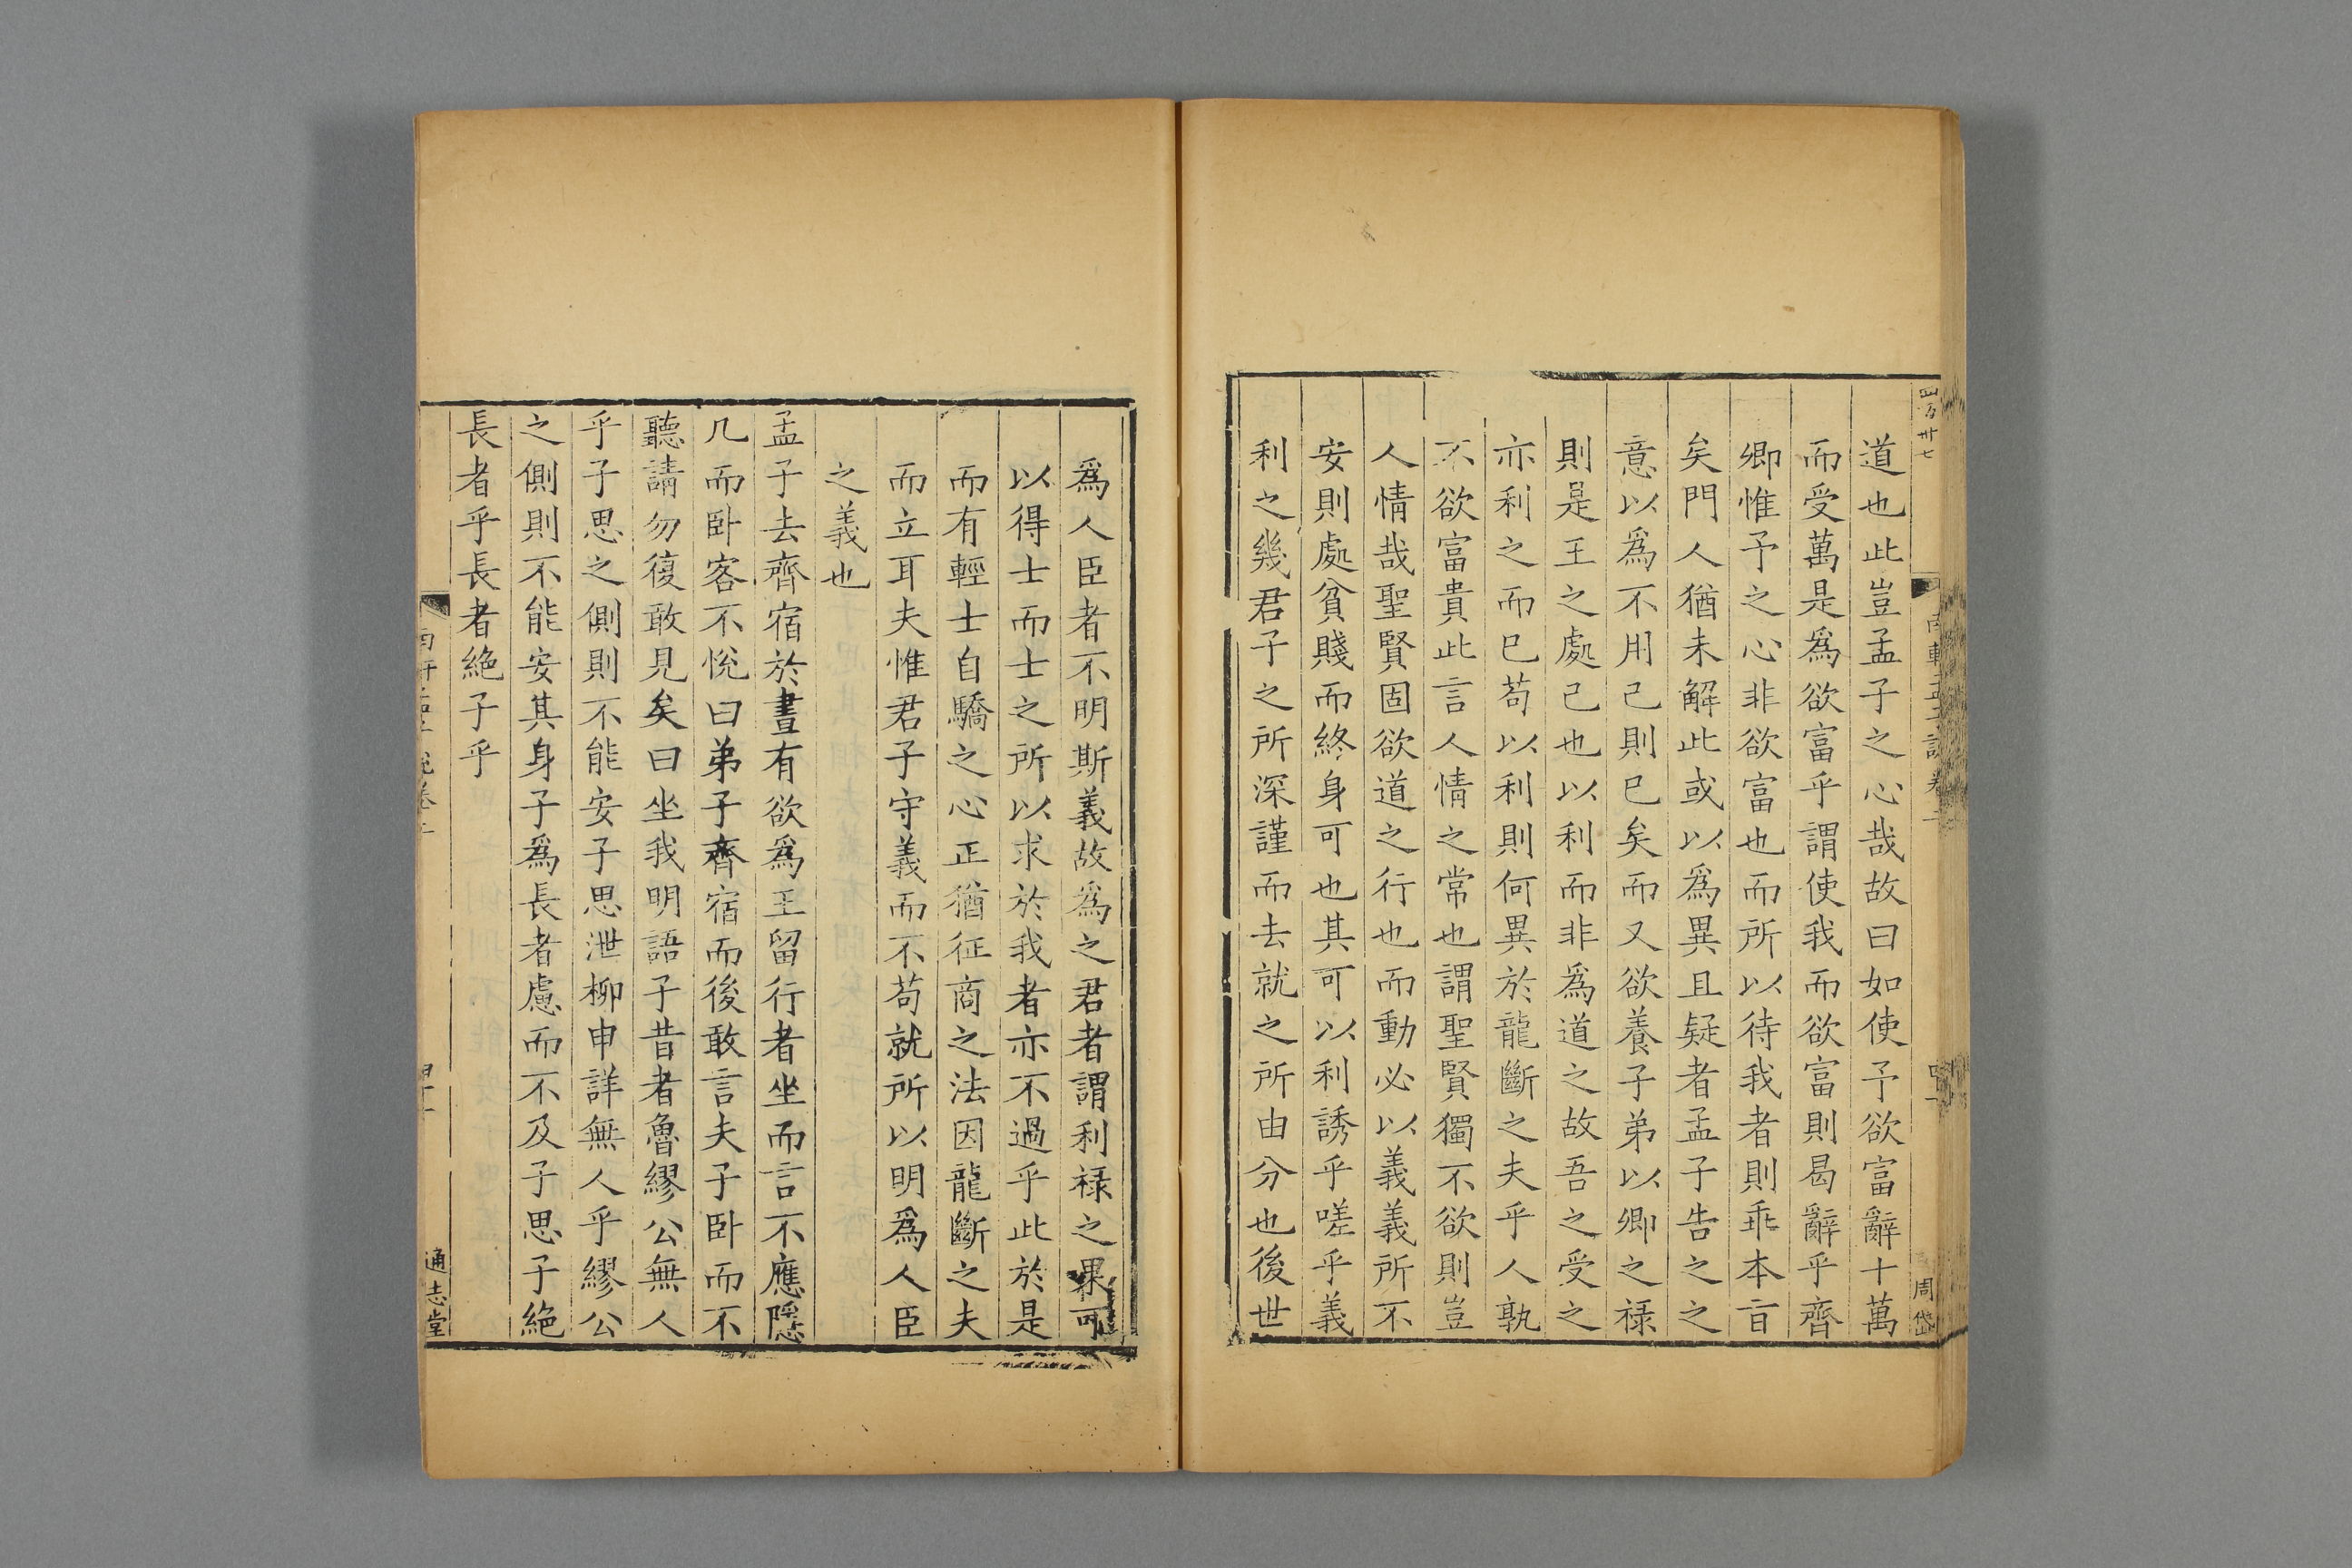 道也此豈孟子之心哉故曰如使予欲富辭十萬
而受萬是爲欲富乎謂使我而欲富則曷辭乎齊
卿惟予之心非欲富也而所以待我者則乖本㫖
矣門人猶未解此或以爲異且疑者孟子告之之
意以爲不用己則已矣而又欲養子弟以卿之禄
則是王之處己也以利而非爲道之故吾之受之
亦利之而已苟以利則何異於龍斷之夫乎人孰
不欲富貴此言人情之常也謂聖賢獨不欲則豈
人情哉聖賢固欲道之行也而動必以義義所不
安則處貧賤而終身可也其可以利誘乎嗟乎義
利之幾君子之所深謹而去就之所由分也後世
周
爲人臣者不明斯義故爲之君者謂利禄之果可
以得士而士之所以求於我者亦不過乎此於是
而有輕士自驕之心正猶征商之法因龍斷之夫
而立耳夫惟君子守義而不苟就所以明爲人臣
之義也
孟子去齊宿於晝有欲爲王留行者坐而言不應隱
几而卧客不悅曰弟子齊宿而後敢言夫子卧而不
聽請勿復敢見矣曰坐我明語子昔者魯繆公無人
乎子思之側則不能安子思泄柳申詳無人乎繆公
之側則不能安其身子爲長者慮而不及子思子絶
長者乎長者絶子乎
通志堂